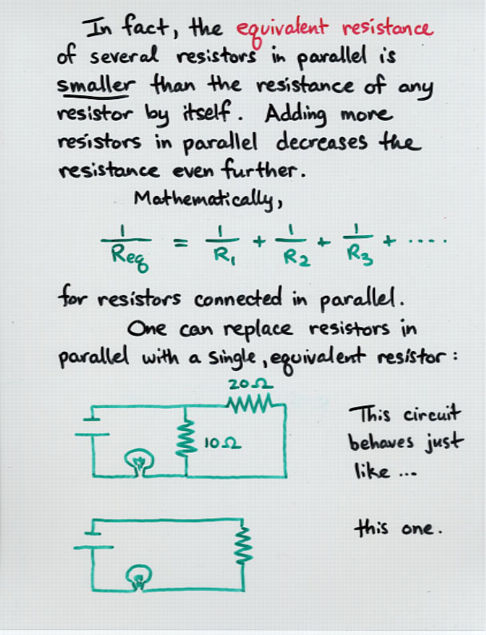 In fact, the equivalent resistance
of several resistors in parallel is
smaller than the resistance of any
resistor by itself. Adding more
resistors in parallel decreases the
resistance even further.
Mathematically,
1/Req = 1/R₁ + 1/R₂ + 1/R₃ + ....
for resistors connected in parallel.
One can replace resistors in
parallel with a single, equivalent resistor:
20Ω
10Ω
This circuit
behaves just
like ...
this one.